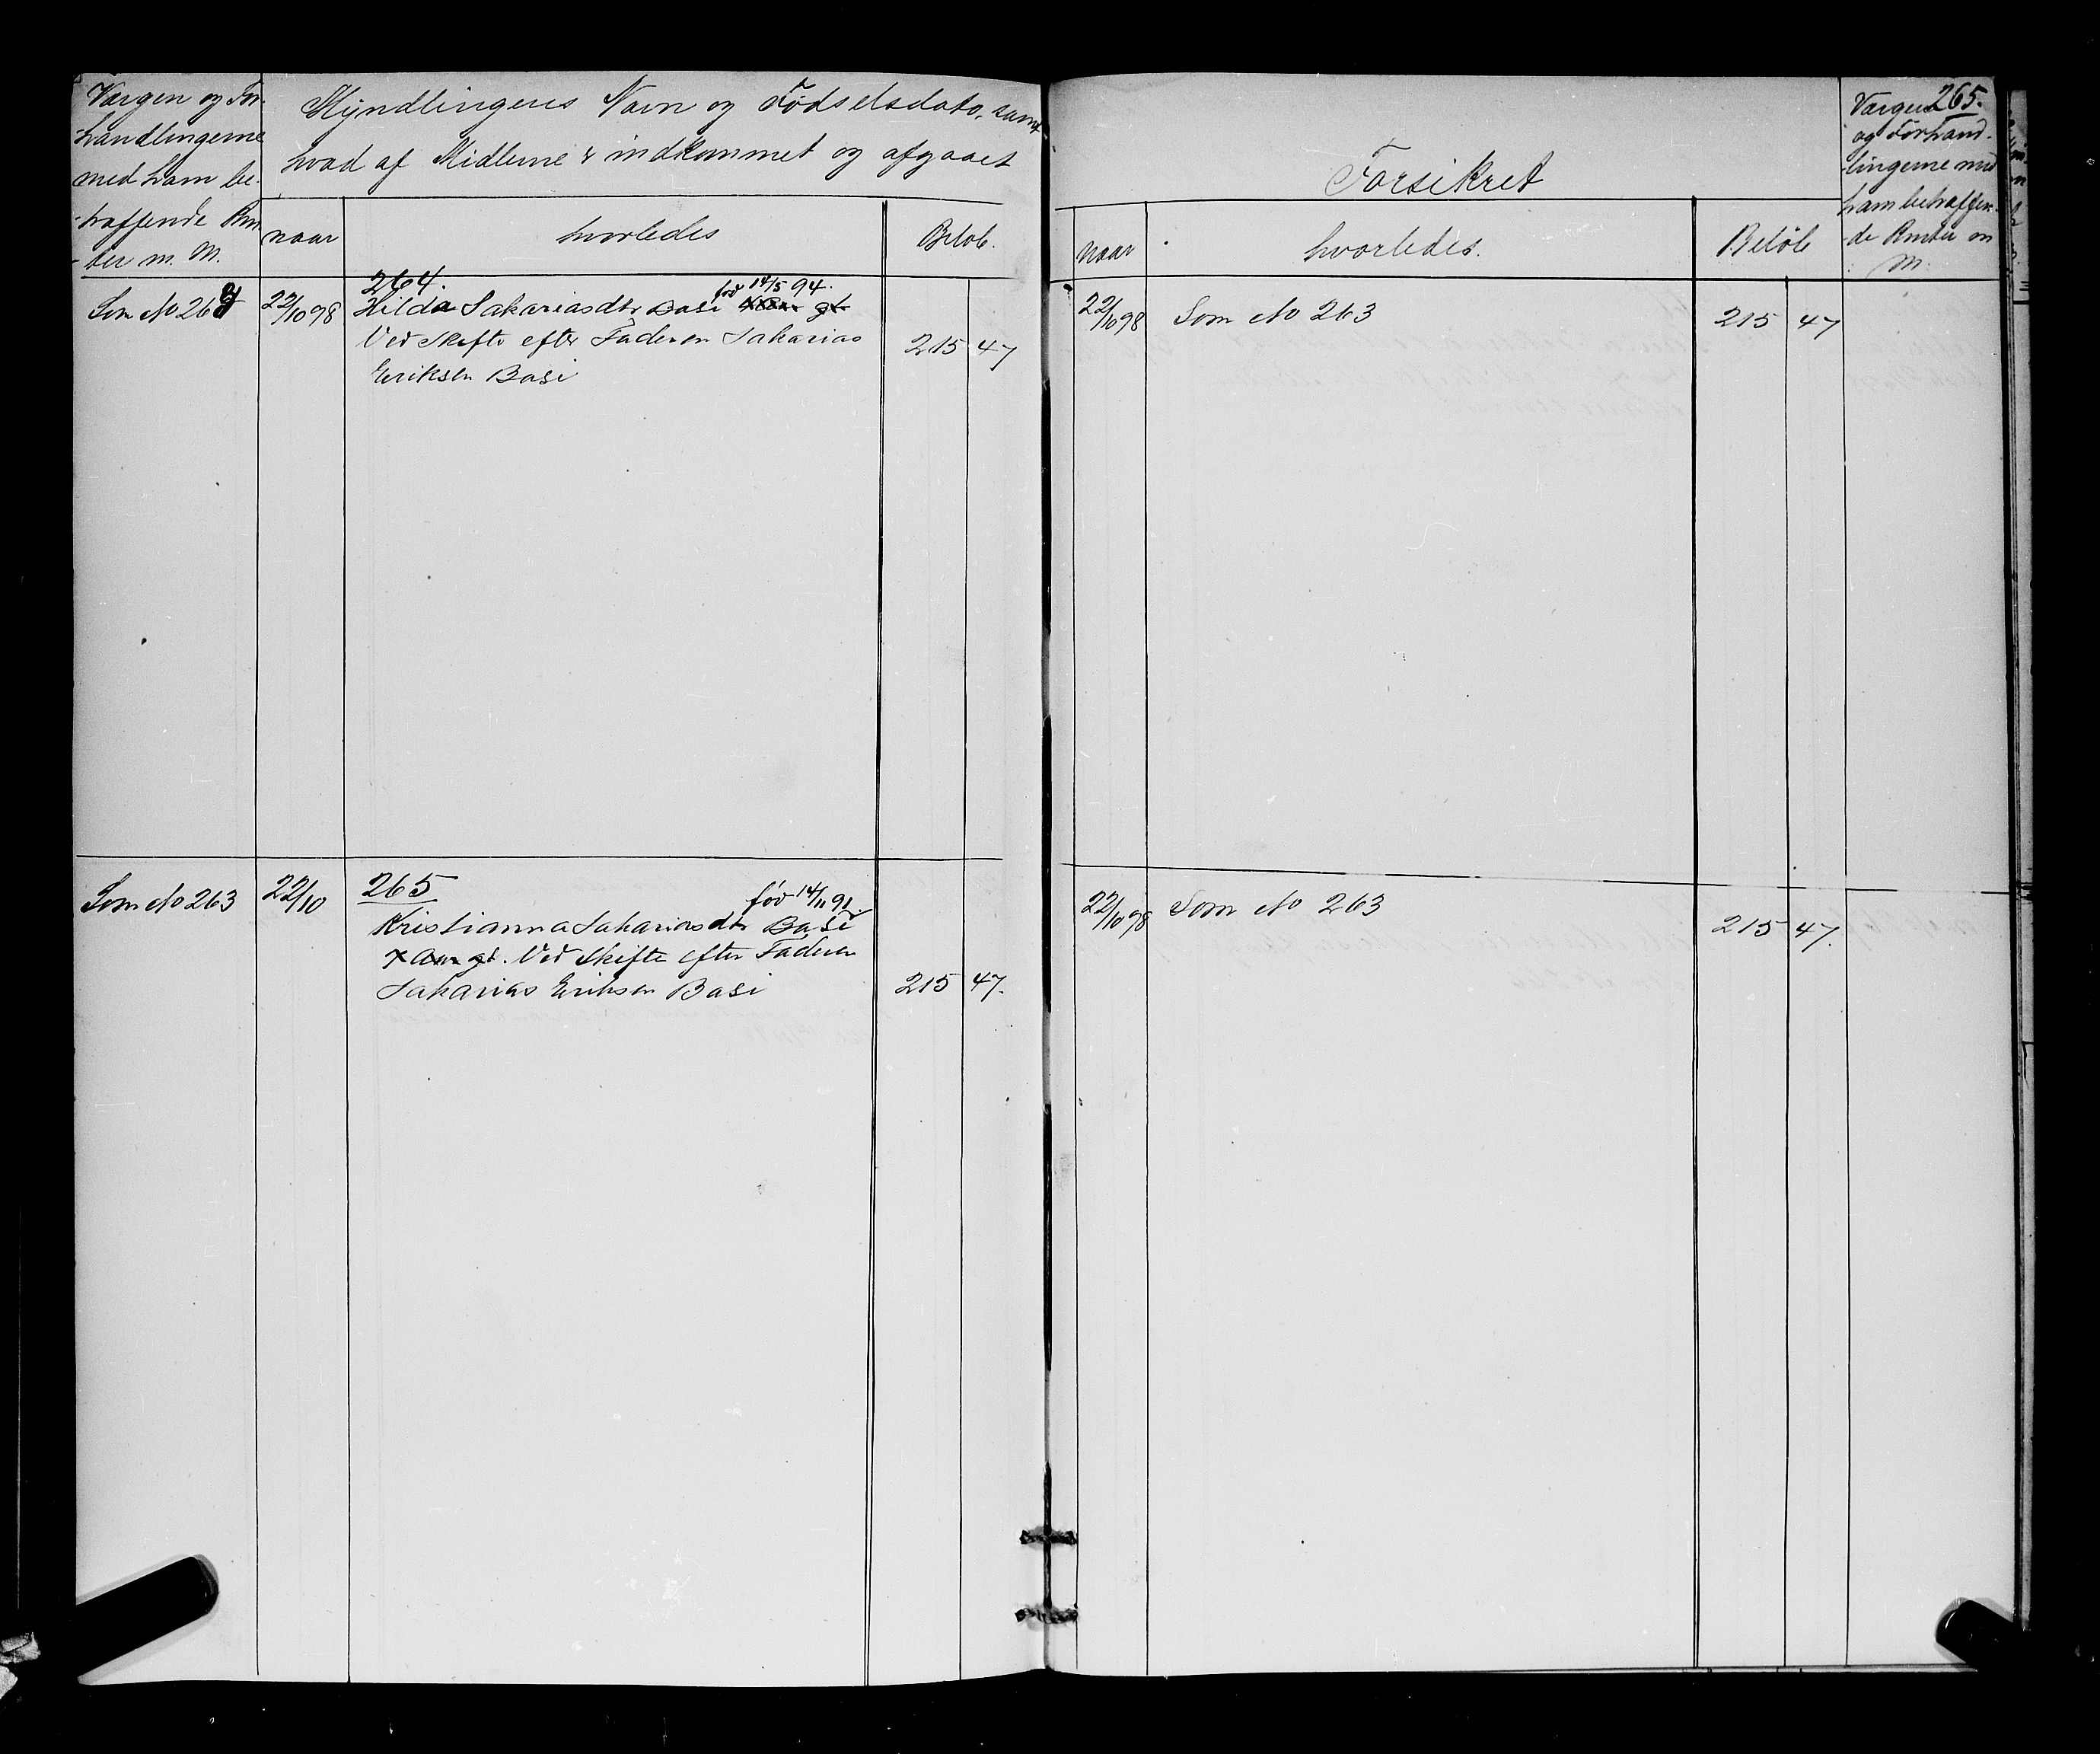 Værgen og For-
handlingerne
med ham be-
-træffende Ren-
-ter m. M.
Myndlingens Navn og Fødselsdato, samt
hvad af Midlerne er indkommet og afgaaet
naar
hvorledes
Beløb.
Som No 263
22/10 98
264.
Hilda Sakariasdtr Basi født 14/5 94.
Ved Skifte efter Faderen Sakarias
Eriksen Basi
215 47
Som No 263
22/10
265
født 14/11 91.
Kristianna Sakariasdtr Basi
Ved Skifte efter Faderen
Sakarias Eriksen Basi
215 47.
265.
Forsikret
Værgen
og Forhand-
-lingerne med
ham betræffen-
-de Renter m
M.
naar
hvorledes.
Beløb
22/10 98
Som No 263
215 47
22/10 98
Som No 263
215 47.